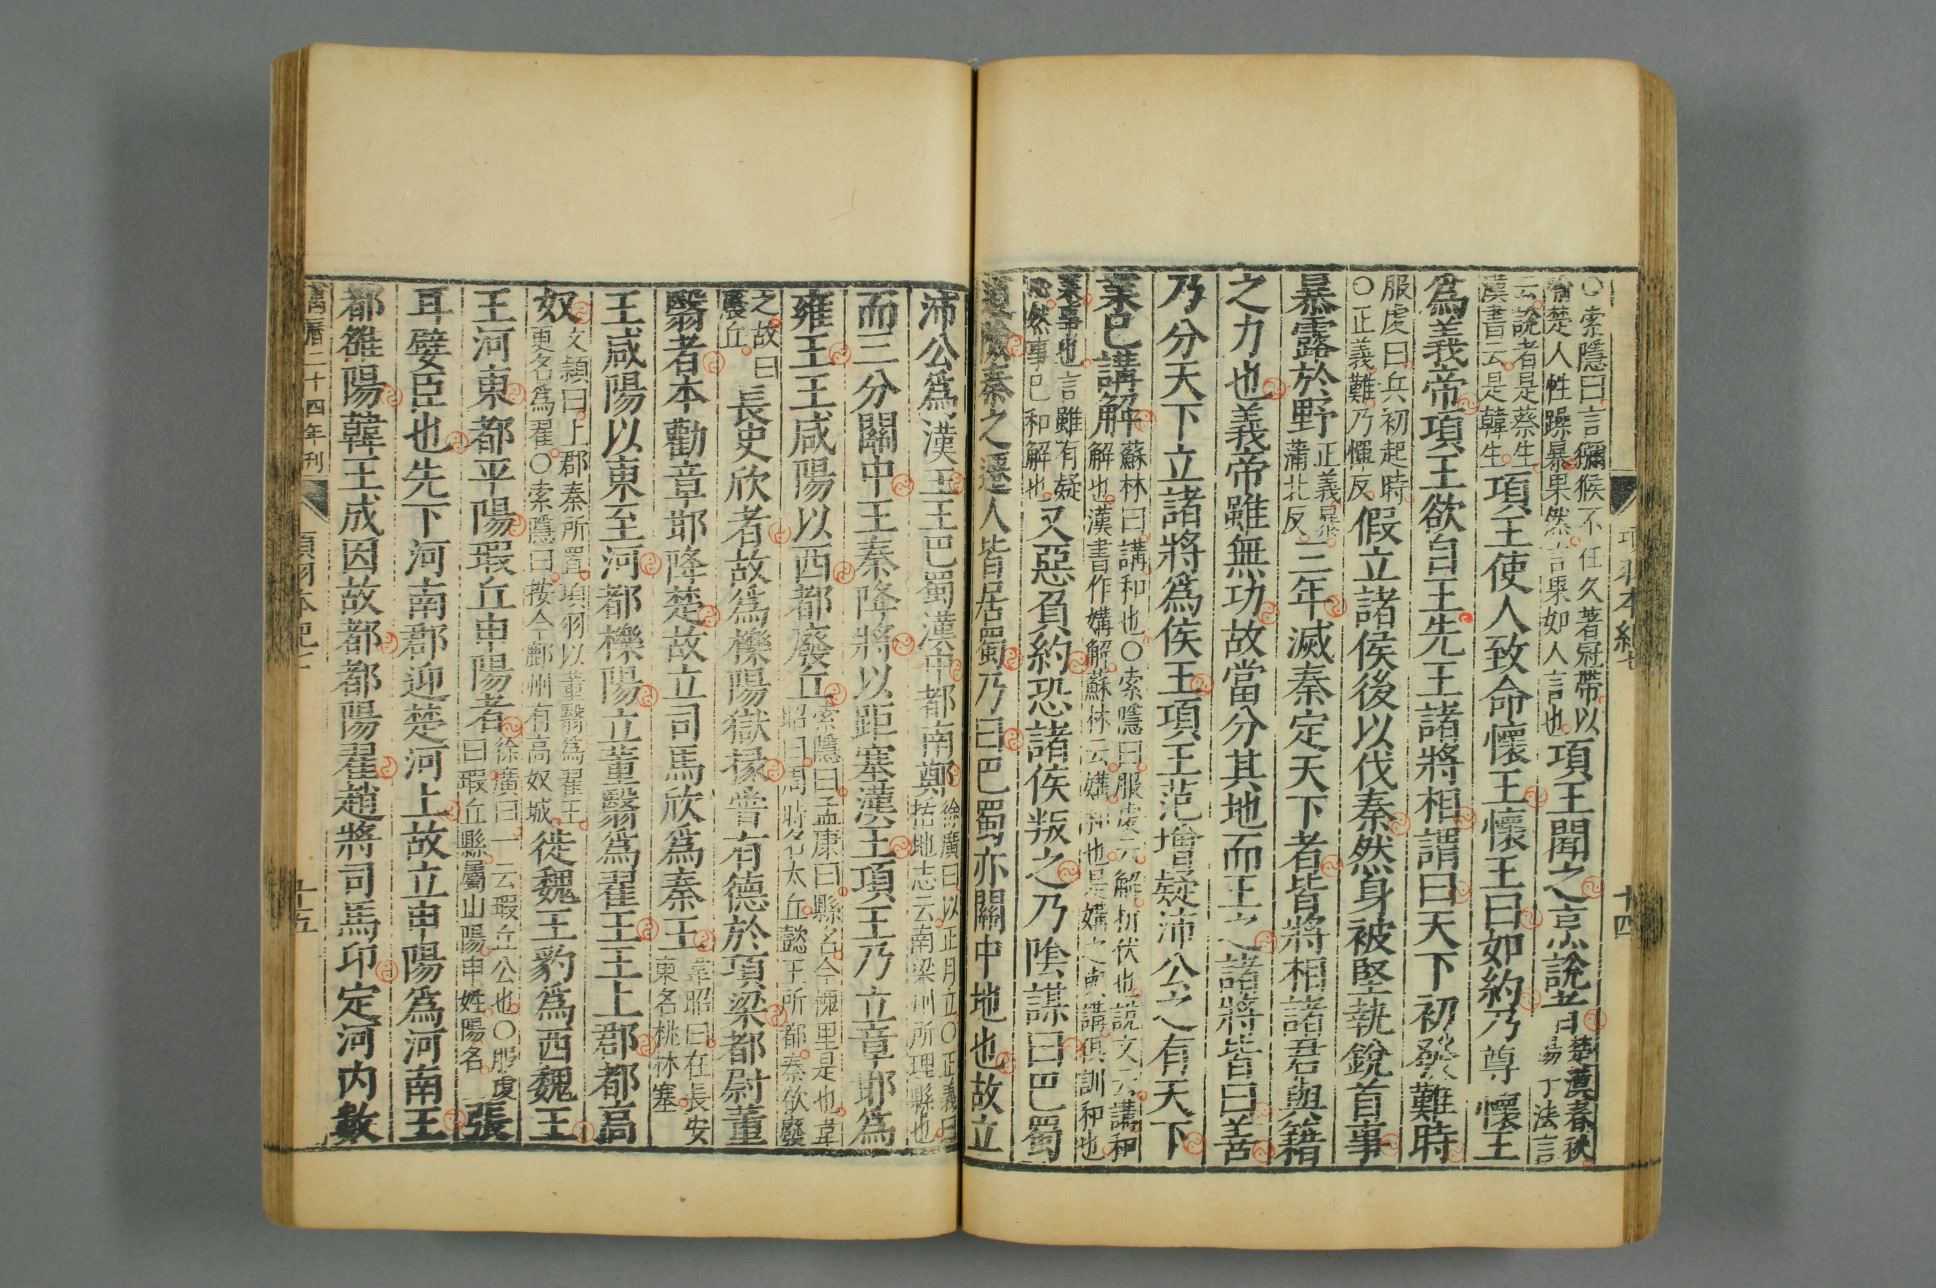 項羽本紀七
十四
○索隱曰言獼猴不任久著冠帶以
喻楚人性躁暴果然言果如人言也項王聞之烹說者楚漢春秋
揚子法言
云說者是蔡生
漢書云是韓生項王使人致命懷王懷王曰如約乃尊懷王
爲義帝項王欲自王先王諸將相謂曰天下初發難時
服虔曰兵初起時
○正義難乃憚反假立諸侯後以伐秦然身被堅執銳首事
暴露於野正義暴
蒲北反三年滅秦定天下者皆將相諸君與籍
之力也義帝雖無功故當分其地而王之諸將皆曰善
乃分天下立諸將爲侯王項王范增疑沛公之有天下
業已講解蘇林曰講和也○索隱曰服虔云解折伏也說文云講和
解也漢書作媾解蘇林云媾和也是媾之與講俱訓和也
業事也言雖有疑
心然事已和解也又惡負約恐諸侯叛之乃陰謀曰巴蜀
道險秦之遷人皆居蜀乃曰巴蜀亦關中地也故立
沛公爲漢王王巴蜀漢中都南鄭徐廣曰以正月立○正義曰
括地志云南梁州所理縣也
而三分關中王秦降將以距塞漢王項王乃立章邯爲
雍王王咸陽以西都廢丘索隱曰孟康曰縣名今槐里是也韋
昭曰周時名犬丘懿王所都秦欲廢
之故曰
廢丘長史欣者故爲櫟陽獄掾嘗有德於項梁都尉董
翳者本勸章邯降楚故立司馬欣爲秦王韋昭曰在長安
東名桃林塞
王咸陽以東至河都櫟陽立董翳爲翟王王上郡都高
奴文穎曰上郡秦所置項羽以董翳爲翟王
更名爲翟○索隱曰按今鄜州有高奴城徙魏王豹爲西魏王
王河東都平陽瑕丘申陽者徐廣曰一云瑕丘公也○服虔
曰瑕丘縣屬山陽申姓陽名張
耳嬖臣也先下河南郡迎楚河上故立申陽爲河南王
都雒陽韓王成因故都都陽翟趙將司馬卬定河內數
萬曆二十四年刊
項羽本紀七
十五